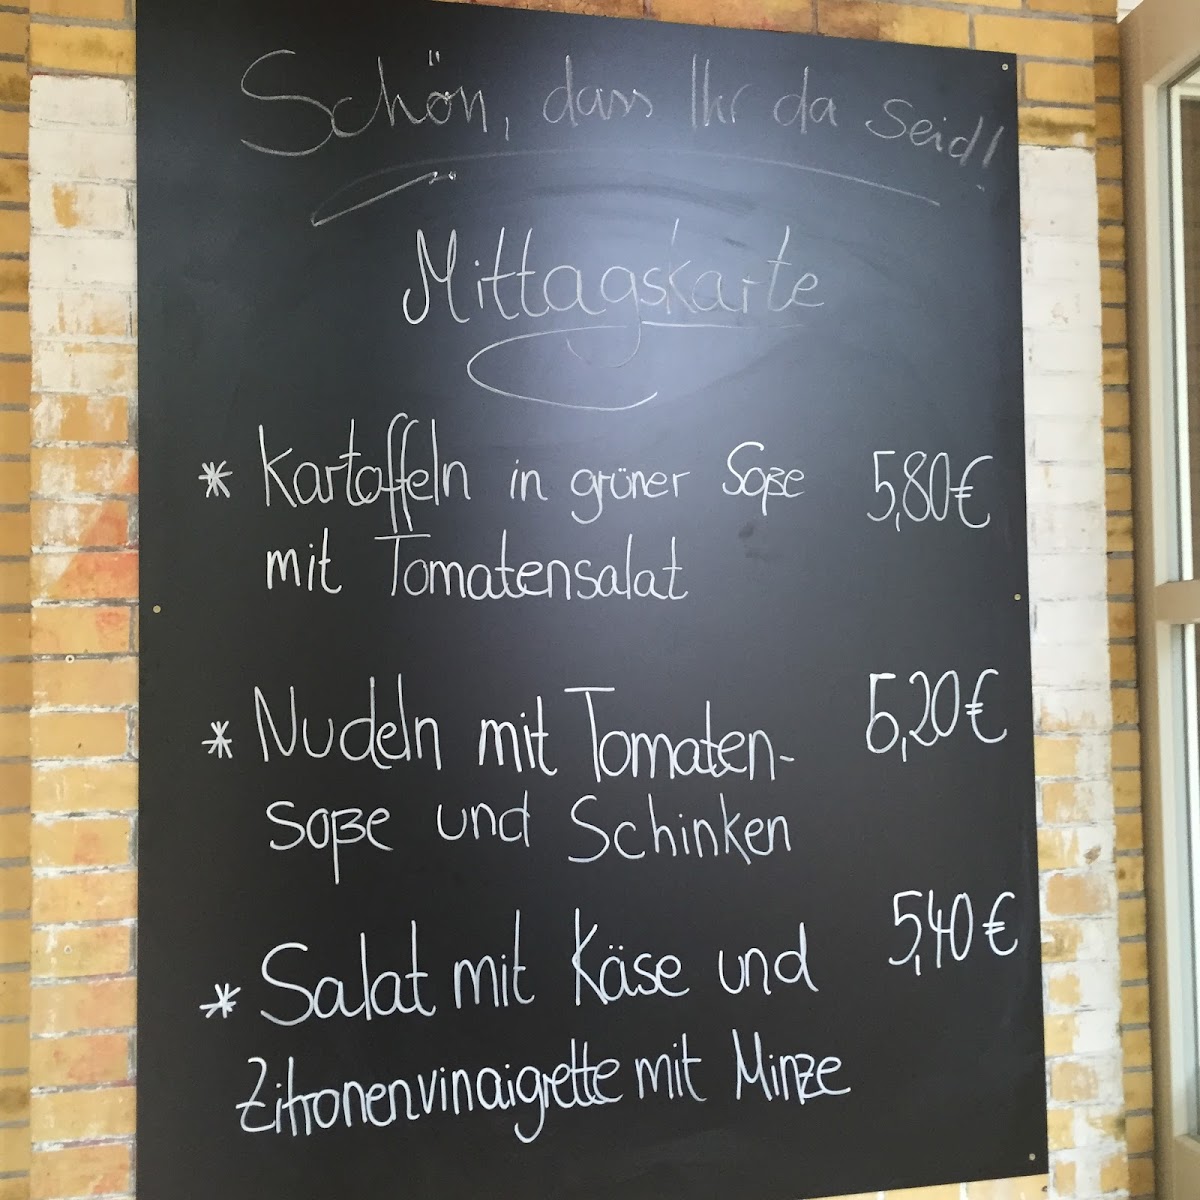 Schön, dass Ihr da seid!
Mittagskarte
* Kartoffeln in grüner Soße 5,80€
mit Tomatensalat
* Nudeln mit Tomaten- 5,20€
soße und Schinken
* Salat mit Käse und 5,40€
Zitronenvinaigrette mit Minze